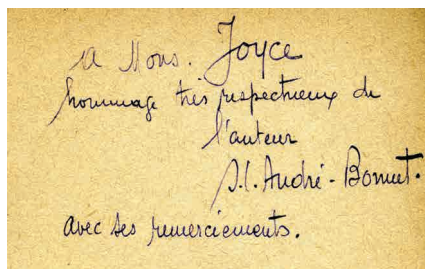 A Mons. Joyce
hommage très respectueux de
l'auteur
J.L. André-Bonnet.
avec ses remerciements.